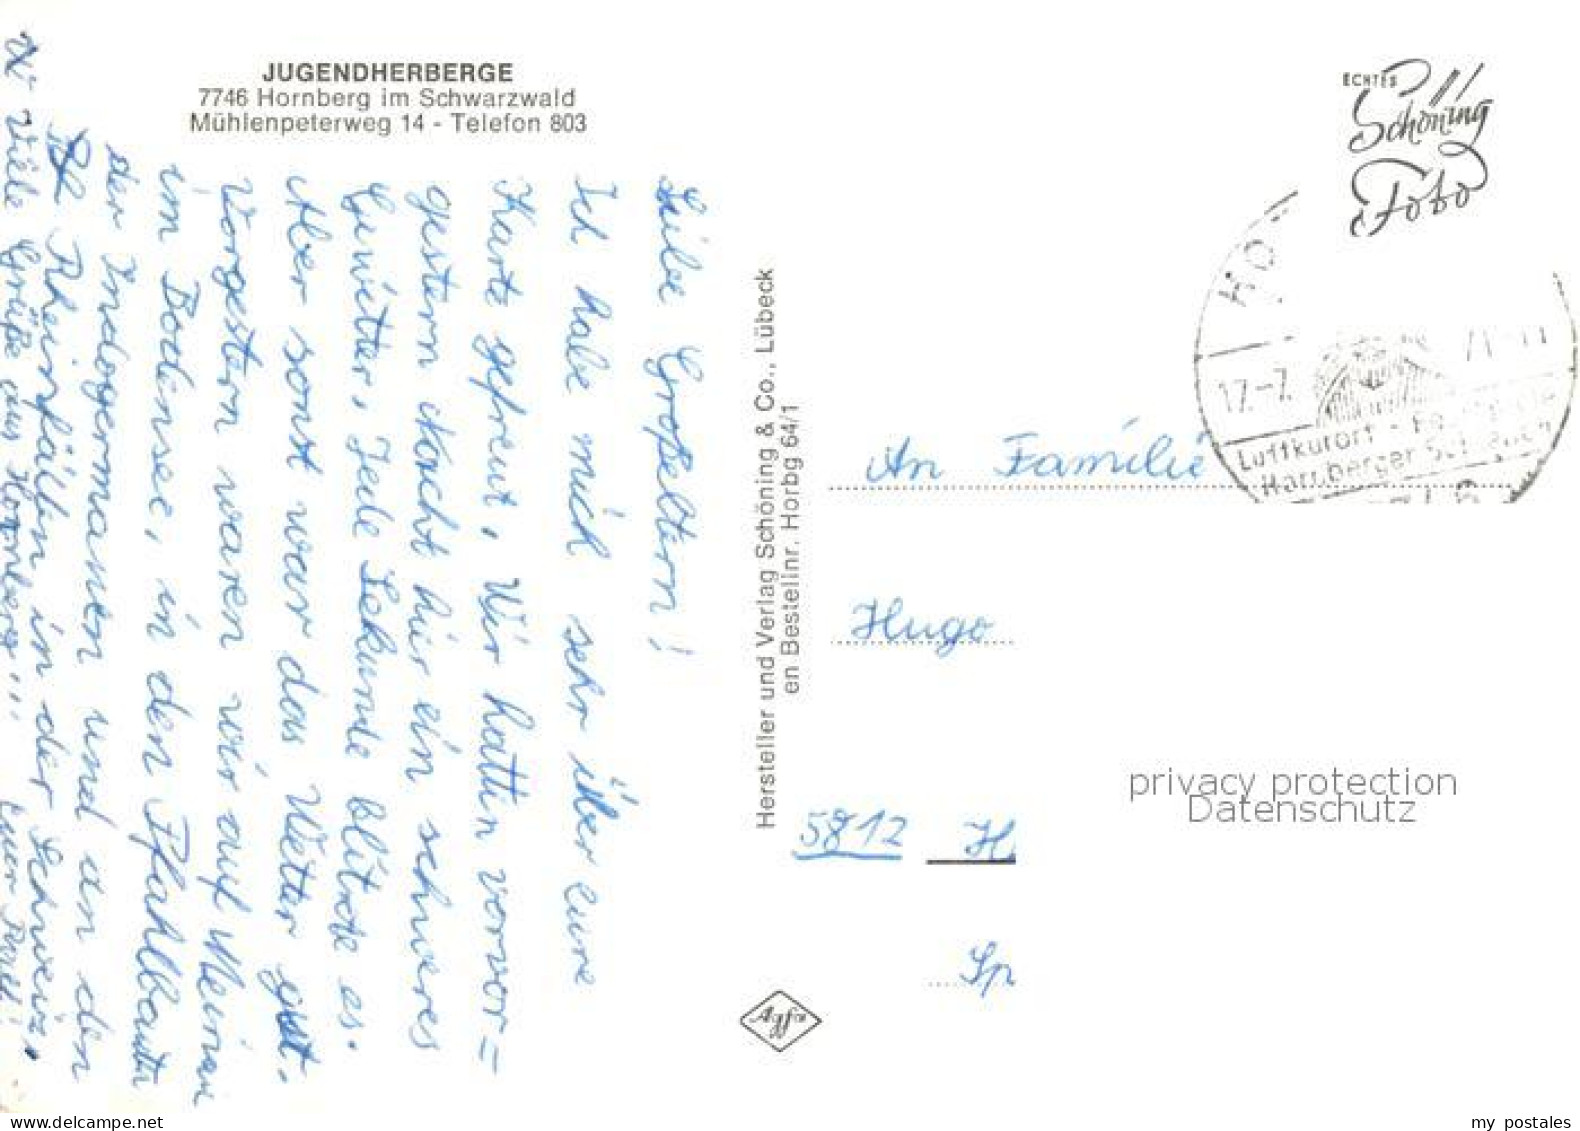 JUGENDHERBERGE
7746 Hornberg im Schwarzwald
Mühlenpeterweg 14 - Telefon 803
Liebe Großeltern!
Ich habe mich sehr über eure
Karte gefreut. Wir hatten vorvor=
gestern Nacht hier ein schweres
Gewitter. Jede Sekunde blitzte es.
Aber sonst war das Wetter gut.
Vorgestern waren wir auf Meinau
im Bodensee, in den Pfahlbauten
der Indogermanen und an den
Rheinfällen in der Schweiz.
Viele Grüße aus Hornberg...
Hersteller und Verlag Schöning & Co., Lübeck
en Bestellnr. Horbg 64/1
ECHTES
Schöning
Foto
HO
17.-7.
Luftkurort
Hornberger
An Familie
Hugo
5812 H
Sp
privacy protection
Datenschutz
Agfa
delcampe.net
my postales